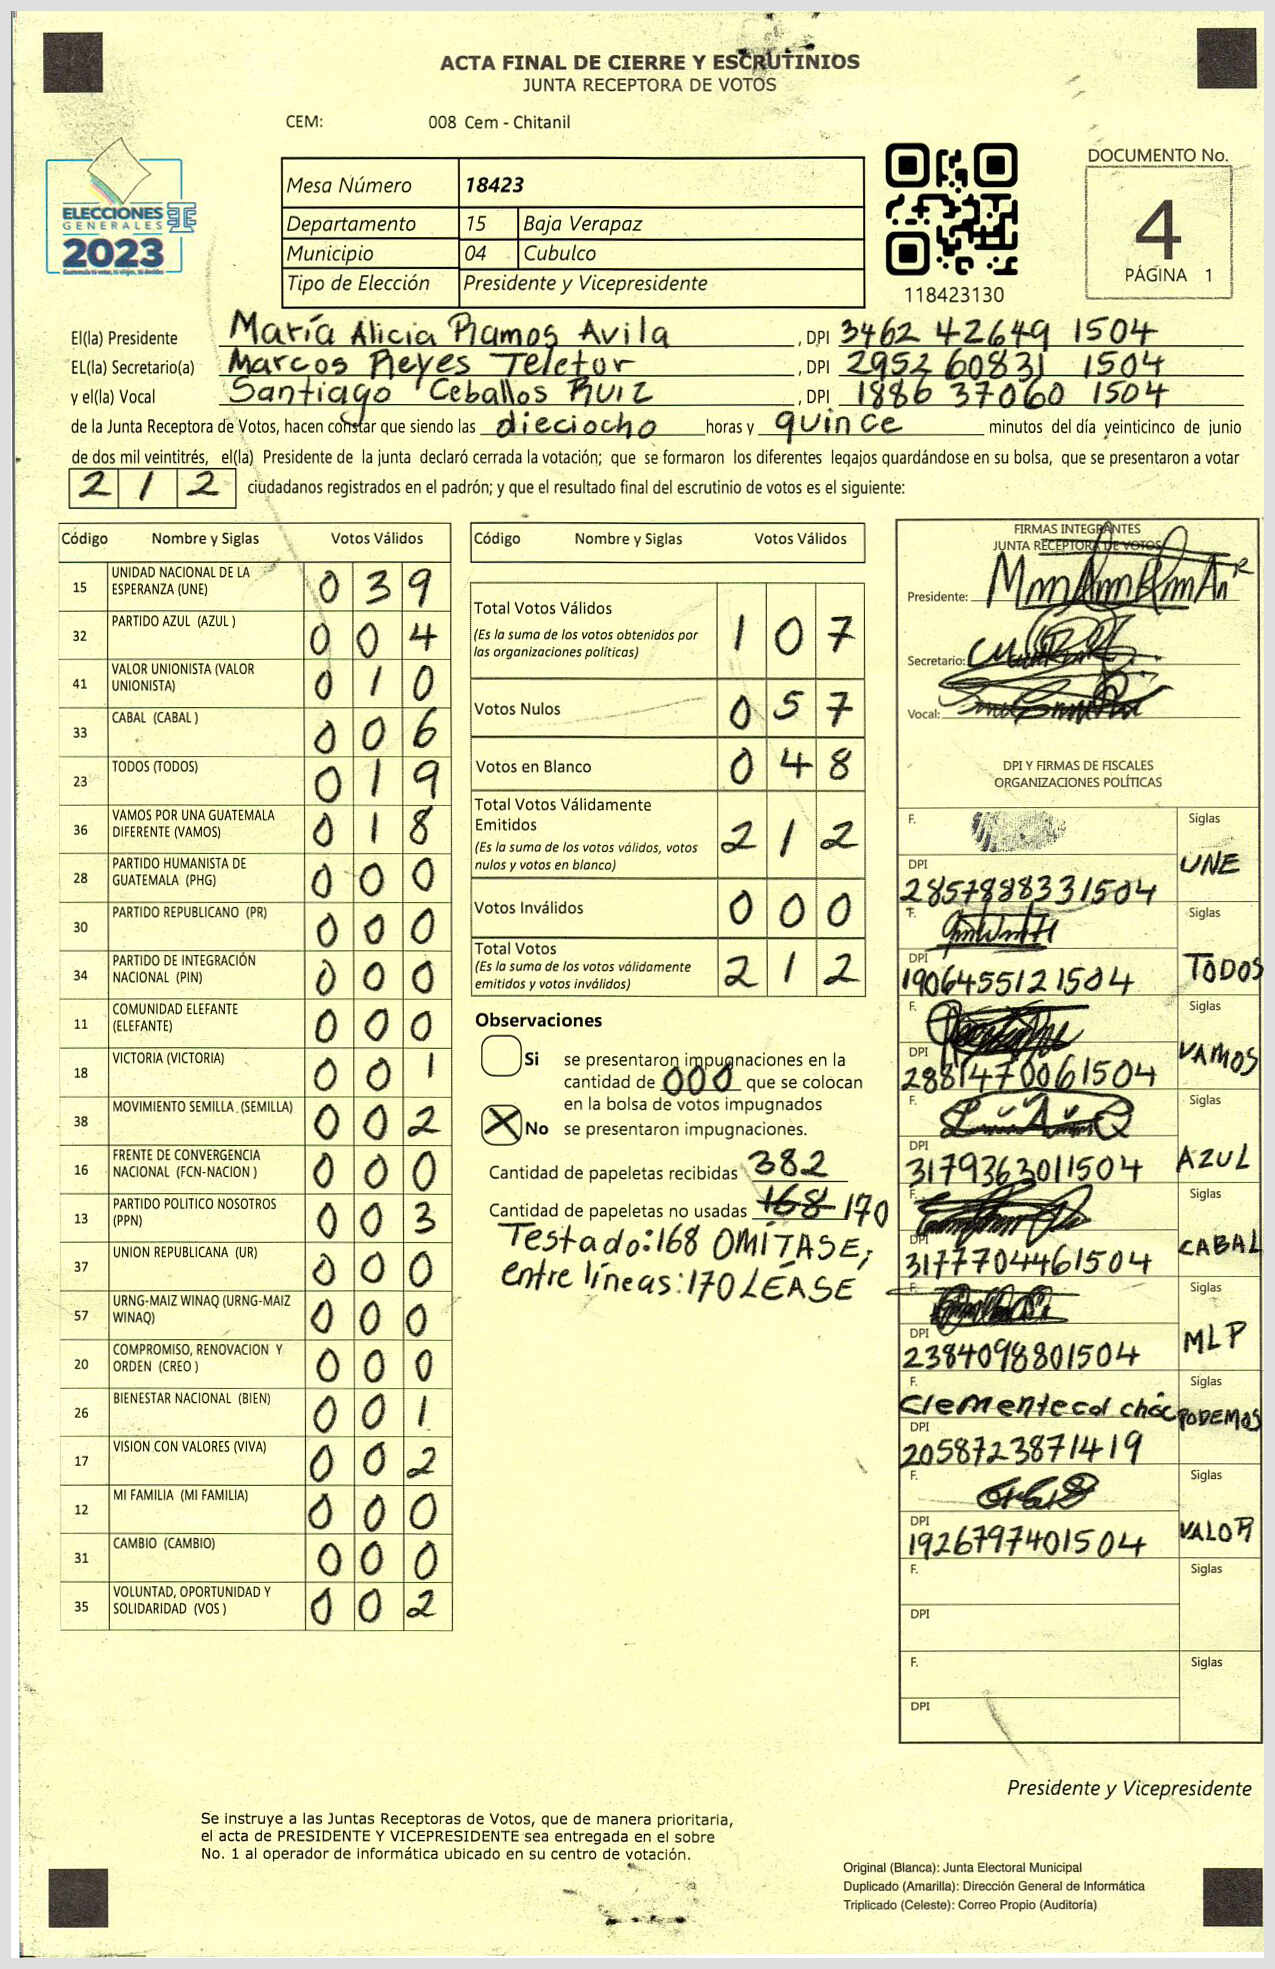 ACTA FINAL DE CIERRE Y ESCRUTINIOS
JUNTA RECEPTORA DE VOTOS
CEM: 008 Cem - Chitanil
ELECCIONES
GENERALES
2023
Mesa Número 18423
Departamento 15 Baja Verapaz
Municipio 04 Cubulco
Tipo de Elección Presidente y Vicepresidente
118423130
DOCUMENTO No.
4
PÁGINA 1
El(la) Presidente María Alicia Ramos Avila, DPI 3462 42649 1504
EL(la) Secretario(a) Marcos Reyes Teletor, DPI 2952 60831 1504
y el(la) Vocal Santiago Ceballos Ruiz, DPI 1886 37060 1504
de la Junta Receptora de Votos, hacen constar que siendo las dieciocho horas y quince minutos del día veinticinco de junio
de dos mil veintitrés, el(la) Presidente de la junta declaró cerrada la votación; que se formaron los diferentes legajos guardándose en su bolsa, que se presentaron a votar
212 ciudadanos registrados en el padrón; y que el resultado final del escrutinio de votos es el siguiente:
Código Nombre y Siglas Votos Válidos
15 UNIDAD NACIONAL DE LA ESPERANZA (UNE) 039
32 PARTIDO AZUL (AZUL ) 004
41 VALOR UNIONISTA (VALOR UNIONISTA) 010
33 CABAL (CABAL ) 006
23 TODOS (TODOS) 019
36 VAMOS POR UNA GUATEMALA DIFERENTE (VAMOS) 018
28 PARTIDO HUMANISTA DE GUATEMALA (PHG) 000
30 PARTIDO REPUBLICANO (PR) 000
34 PARTIDO DE INTEGRACIÓN NACIONAL (PIN) 000
11 COMUNIDAD ELEFANTE (ELEFANTE) 000
18 VICTORIA (VICTORIA) 001
38 MOVIMIENTO SEMILLA (SEMILLA) 002
16 FRENTE DE CONVERGENCIA NACIONAL (FCN-NACION ) 000
13 PARTIDO POLITICO NOSOTROS (PPN) 003
37 UNION REPUBLICANA (UR) 000
57 URNG-MAIZ WINAQ (URNG-MAIZ WINAQ) 000
20 COMPROMISO, RENOVACION Y ORDEN (CREO ) 000
26 BIENESTAR NACIONAL (BIEN) 001
17 VISION CON VALORES (VIVA) 002
12 MI FAMILIA (MI FAMILIA) 000
31 CAMBIO (CAMBIO) 000
35 VOLUNTAD, OPORTUNIDAD Y SOLIDARIDAD (VOS ) 002
Código Nombre y Siglas Votos Válidos
Total Votos Válidos 107
(Es la suma de los votos obtenidos por
las organizaciones políticas)
Votos Nulos 057
Votos en Blanco 048
Total Votos Válidamente
Emitidos 212
(Es la suma de los votos válidos, votos
nulos y votos en blanco)
Votos Inválidos 000
Total Votos 212
(Es la suma de los votos válidamente
emitidos y votos inválidos)
Observaciones
Si se presentaron impugnaciones en la
cantidad de 000 que se colocan
en la bolsa de votos impugnados
No se presentaron impugnaciones.
Cantidad de papeletas recibidas 382
Cantidad de papeletas no usadas 168 170
Testado: 168 OMÍTASE;
entre líneas: 170 LÉASE
FIRMAS INTEGRANTES
JUNTA RECEPTORA DE VOTOS
Presidente:
Secretario:
Vocal:
DPI Y FIRMAS DE FISCALES
ORGANIZACIONES POLÍTICAS
F. Siglas UNE
DPI 2857888331504
F. Siglas TODOS
DPI 1906455121504
F. Siglas VAMOS
DPI 2881470061504
F. Siglas AZUL
DPI 3179363011504
F. Siglas CABAL
DPI 3177704461504
F. Siglas MLP
DPI 2384098801504
F. Clemente Siglas PODEMOS
DPI 2058723871419
F. Siglas VALOR
DPI 1926797401504
F. Siglas
DPI
F. Siglas
DPI
Presidente y Vicepresidente
Se instruye a las Juntas Receptoras de Votos, que de manera prioritaria,
el acta de PRESIDENTE Y VICEPRESIDENTE sea entregada en el sobre
No. 1 al operador de informática ubicado en su centro de votación.
Original (Blanca): Junta Electoral Municipal
Duplicado (Amarilla): Dirección General de Informática
Triplicado (Celeste): Correo Propio (Auditoría)